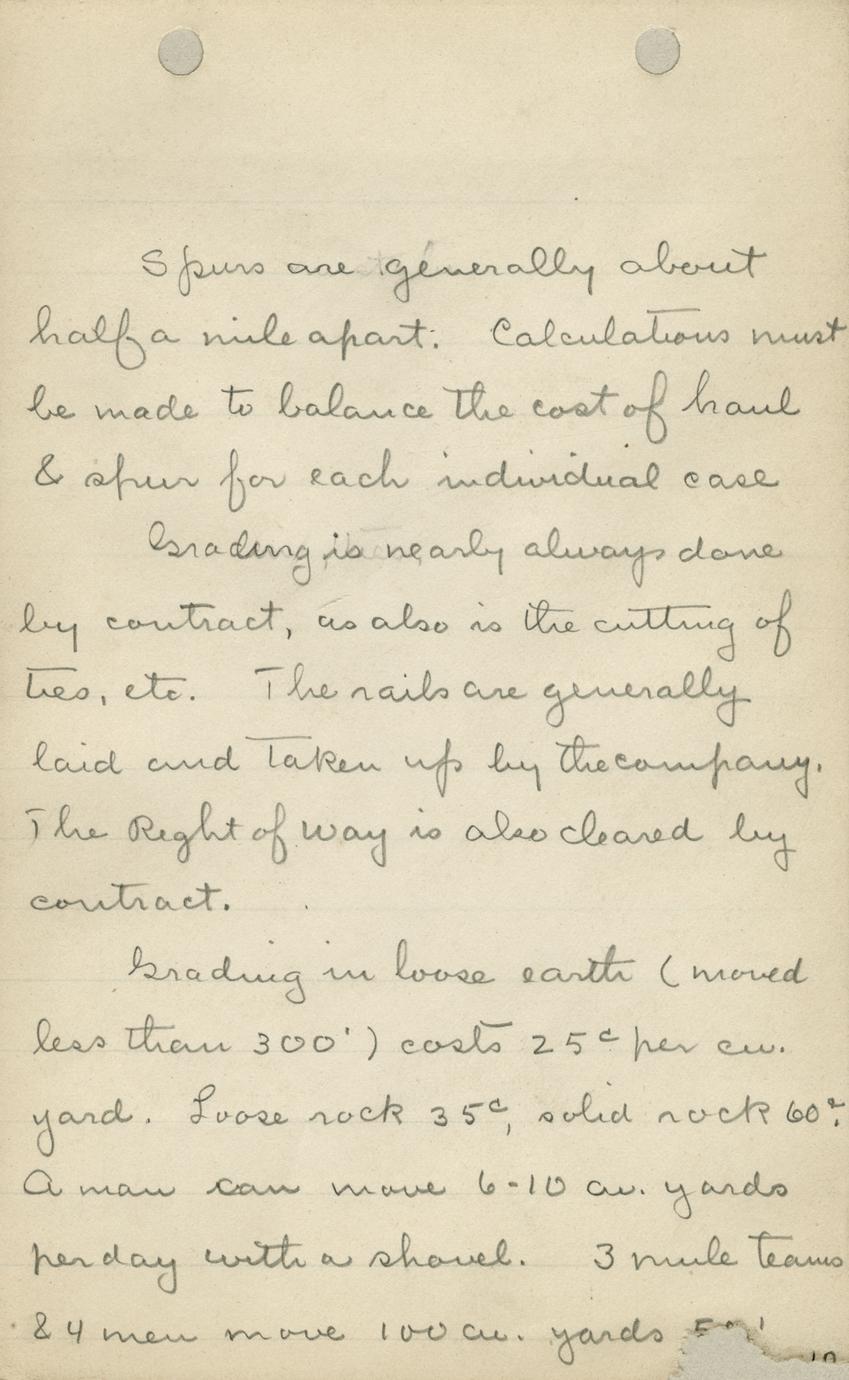 Spurs are generally about
half a mile apart. Calculations must
be made to balance the cost of haul
& spur for each individual case
Grading is nearly always done
by contract, as also is the cutting of
ties, etc. The rails are generally
laid and taken up by the company.
The Right of Way is also cleared by
contract.
Grading in loose earth (moved
less than 300') costs 25¢ per cu.
yard. Loose rock 35¢, solid rock 60¢.
A man can move 6-10 cu. yards
per day with a shovel. 3 mule teams
& 4 men move 100 cu. yards